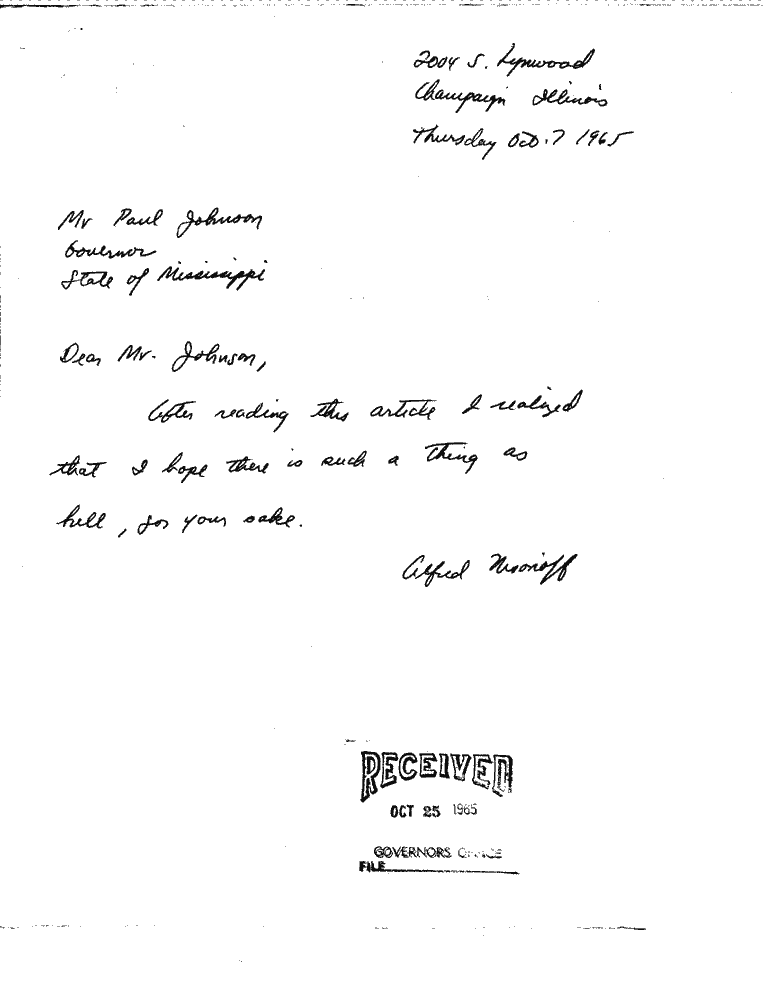 2004 S. Lynwood
Champaign Illinois
Thursday Oct. 7 1965
Mr Paul Johnson
Governor
State of Mississippi
Dear Mr. Johnson,
After reading this article I realized
that I hope there is such a thing as
hell, for your sake.
Alfred Nisonoff
RECEIVED
OCT 25 1965
GOVERNORS OFFICE
FILE